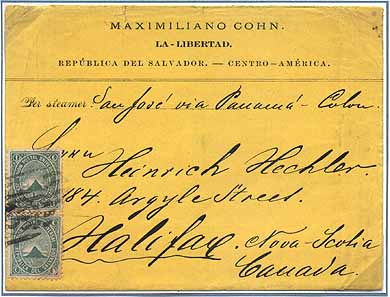 MAXIMILIANO COHN.
LA-LIBERTAD.
REPÚBLICA DEL SALVADOR. — CENTRO-AMÉRICA.
Per steamer: San José via Panamá - Colon
Herrn
Heinrich Hechler.
184. Argyle Street.
Halifax, Nova-Scotia
Canada.